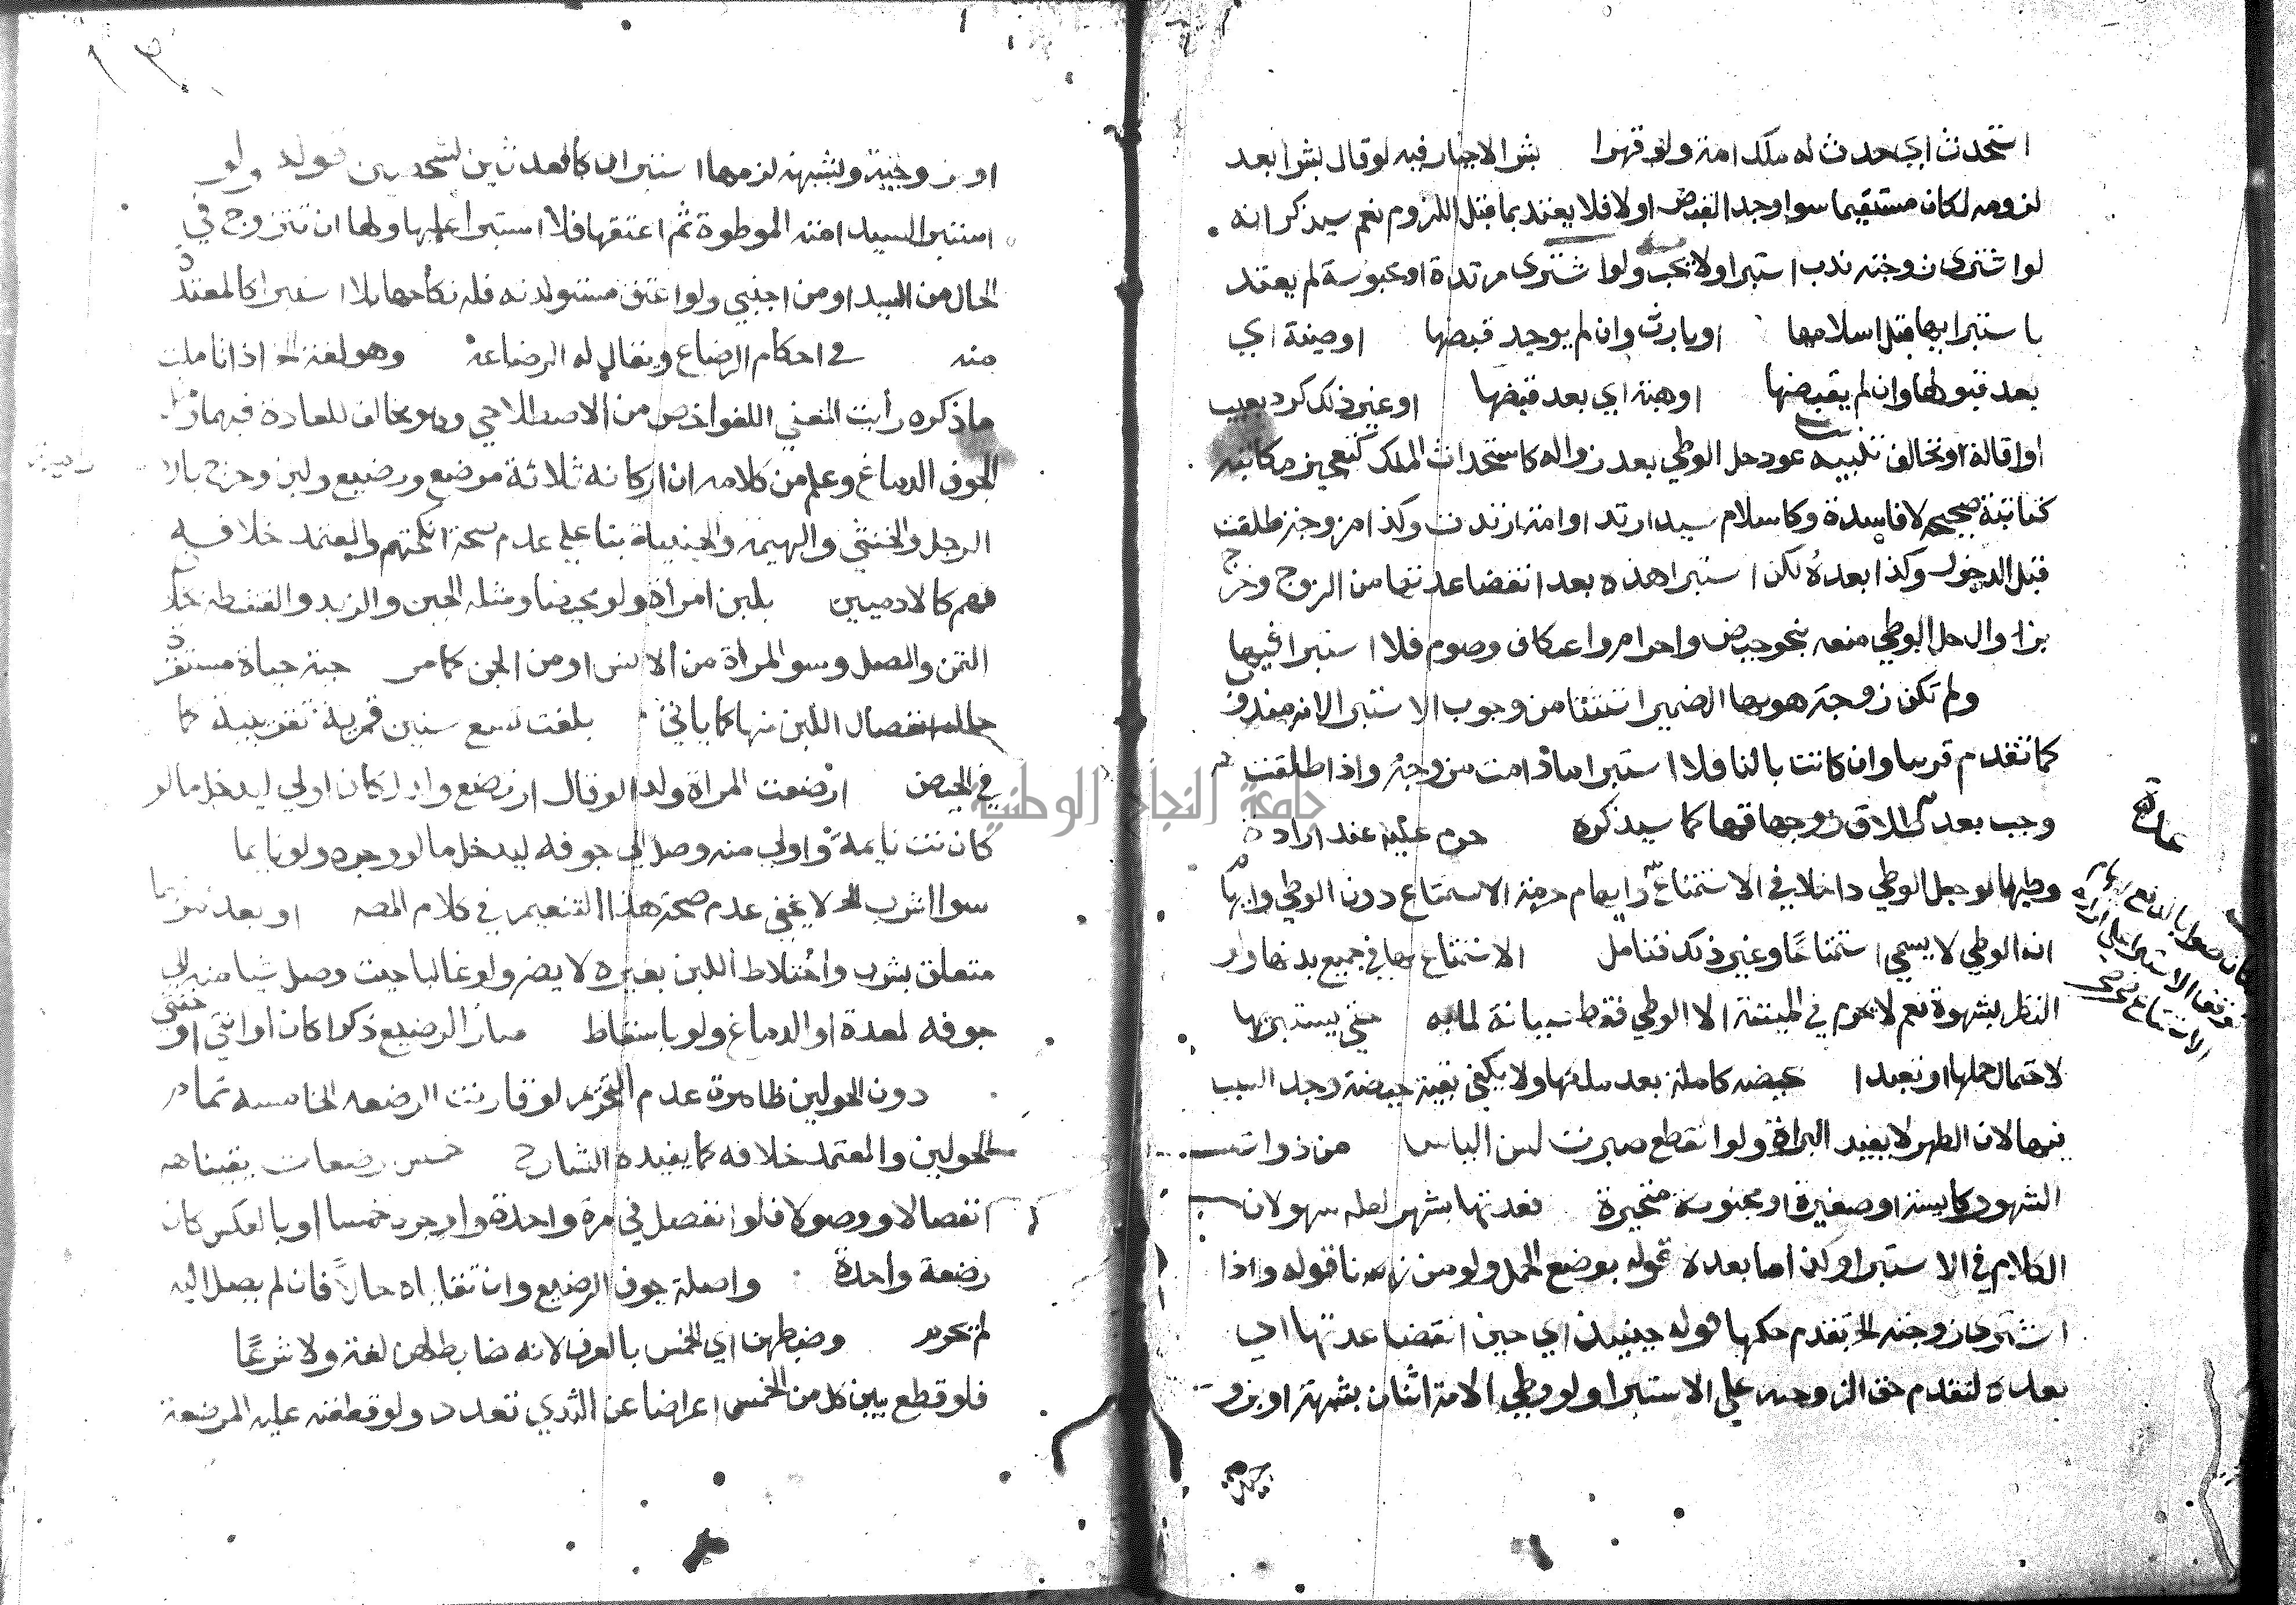 استحدث اي حدث له ملك امة ولو قهرا بشرا لاخيار فيه لو قال بشرا بعد
لزومه لكان مستقيما سوا وجد القبض اولا فلا يعتد بما قبل اللزوم نعم سيذكر انه
لو اشترى زوجته ندب استبرا ولا يجب ولو اشترى مرتدة او مجوسية لم يعتد
باستبرايها قبل اسلامها او بارث وان لم يوجد قبضها او وصية اي
بعد قبولها وان لم يقبضها او هبة اي بعد قبضها او غير ذلك كرد بعيب
او اقالة او تحالف تنبيه عود حل الوطي بعد زواله كاستحداث الملك كتعجيز مكاتبته
كتابة صحيحة لا فاسدة وكاسلام سيد ارتد او امة ارتدت وكذا مزوجة طلقت
قبل الدخول وكذا بعده لكن استبرا هذه بعد انقضا عدتها من الزوج وخرج
بزاوال حل الوطي منعه بنحو حيض واحرام واعتكاف وصوم فلا استبرا فيها
ولم تكن زوجة هو بها الضمير استثنا من وجوب الاستبرا لانه مندوب
كما تقدم قريبا وان كانت بالنا فلا استبرا ما دامت مزوجة واذا طلقت
وجب بعد طلاق زوجها قربها كما سيذكره حرم عليه عند ارادة
وطيها لو جعل الوطي داخلا في الاستمتاع وايهام حرمة الاستمتاع دون الوطي وايها
انه الوطي لا يسمى استمتاعا وغير ذلك فتامل الاستمتاع بها في جميع بدنها ولو
النظر بشهوة نعم لا يحرم في المسبية الا الوطي فقط صيانة لمايه حتى يستبريها
لاحتمال حملها او تعبدا بحيضة كاملة بعد ملكها ولا يكفي بقية حيضة وجد السبب
فيها لان الطهر لا يفيد البراة ولو انقطع صبرت لسن الياس من ذوات
الشهور كايسة او صغيرة او مجنونة متحيرة فعدتها بشهر لعله سهو لان
الكلام في الاستبرا وكذا ما بعده قوله بوضع الحمل ولو من زنا قوله واذا
اشترى زوجته الخ تقدم حكمها قوله حينيذ اي حين انقضا عدتها اي
بعده لتقدم حق الزوجية على الاستبرا ولو وطي الامة اثنان بشبهة او بزو
عدته
او زوجية وشبهة لزمها استبران كالعدتين لشخصين قوله ولو
استبرا السيد امته الموطوة ثم اعتقها فلا استبرا عليها ولها ان تتزوج في
الحال من السيد او من اجنبي ولو اعتق مستولدته فله نكاحها بلا استبرا كالمعتدة
منه في احكام الرضاع ويقال له الرضاعة وهو لغة الخ اذا تاملت
ما ذكره رايت المعنى اللغوي اخص من الاصطلاحي وهو مخالف للعادة فيهما
الجوف الدماغ وعلم من كلامه ان اركانه ثلاثة مرضع ورضيع ولبن وخرج
الرجل والخنثى والبهيمة والجنية بنا على عدم صحة انكحتهم والمعتمد خلافه
فهم كالادميين بلبن امراة ولو مخيضا ومثله الجبن والزبد والقشطه
السمن والمصل وسوا المراة من الانس او من الجن كما مر حية حياة مستقرة
حالة انفصال اللبن منها كما ياتي بلغت تسع سنين قمرية تقريبية كما
في الحيض ارضعت المراة ولدا لو قال ارتضع ولد لكان اولى ليدخل ما لو
كانت نايمة واولى منه وصل الى جوفه ليدخل ما لو وجره ولو نايما
سوا اشرب الخ لا يخفى عدم صحة هذا التعميم في كلام المصه او بعد موتها
متعلق بشرب واختلاط اللبن بغيره لا يضر ولو غالبا حيث وصل شيا منه الى
جوفه لمعدة او الدماغ ولو باسقاط صار الرضيع ذكرا كان او انثى او خنثى
دون الحولين ظاهرة عدم التحريم لو قارنت الرضعه الخامسه تمام
الحولين والمعتمد خلافه كما يفيده الشارح خمس رضعات يقينا هه
انفصالا ووصولا فلو انفصل في مرة واحدة واوجره خمسا او بالعكس كان
رضعة واحدة واصلة جوف الرضيع وان تقاياه حالا فان لم يصل اليه
لم يحرم وضبطهن اي الخمس بالعرف لانه ضابط لها لغة ولا شرعا
فلو قطع بين كل من الخمس اعراضا عن الثدي تعدد ولو قطعته عليه المرضعة
جامعة النجاح الوطنية